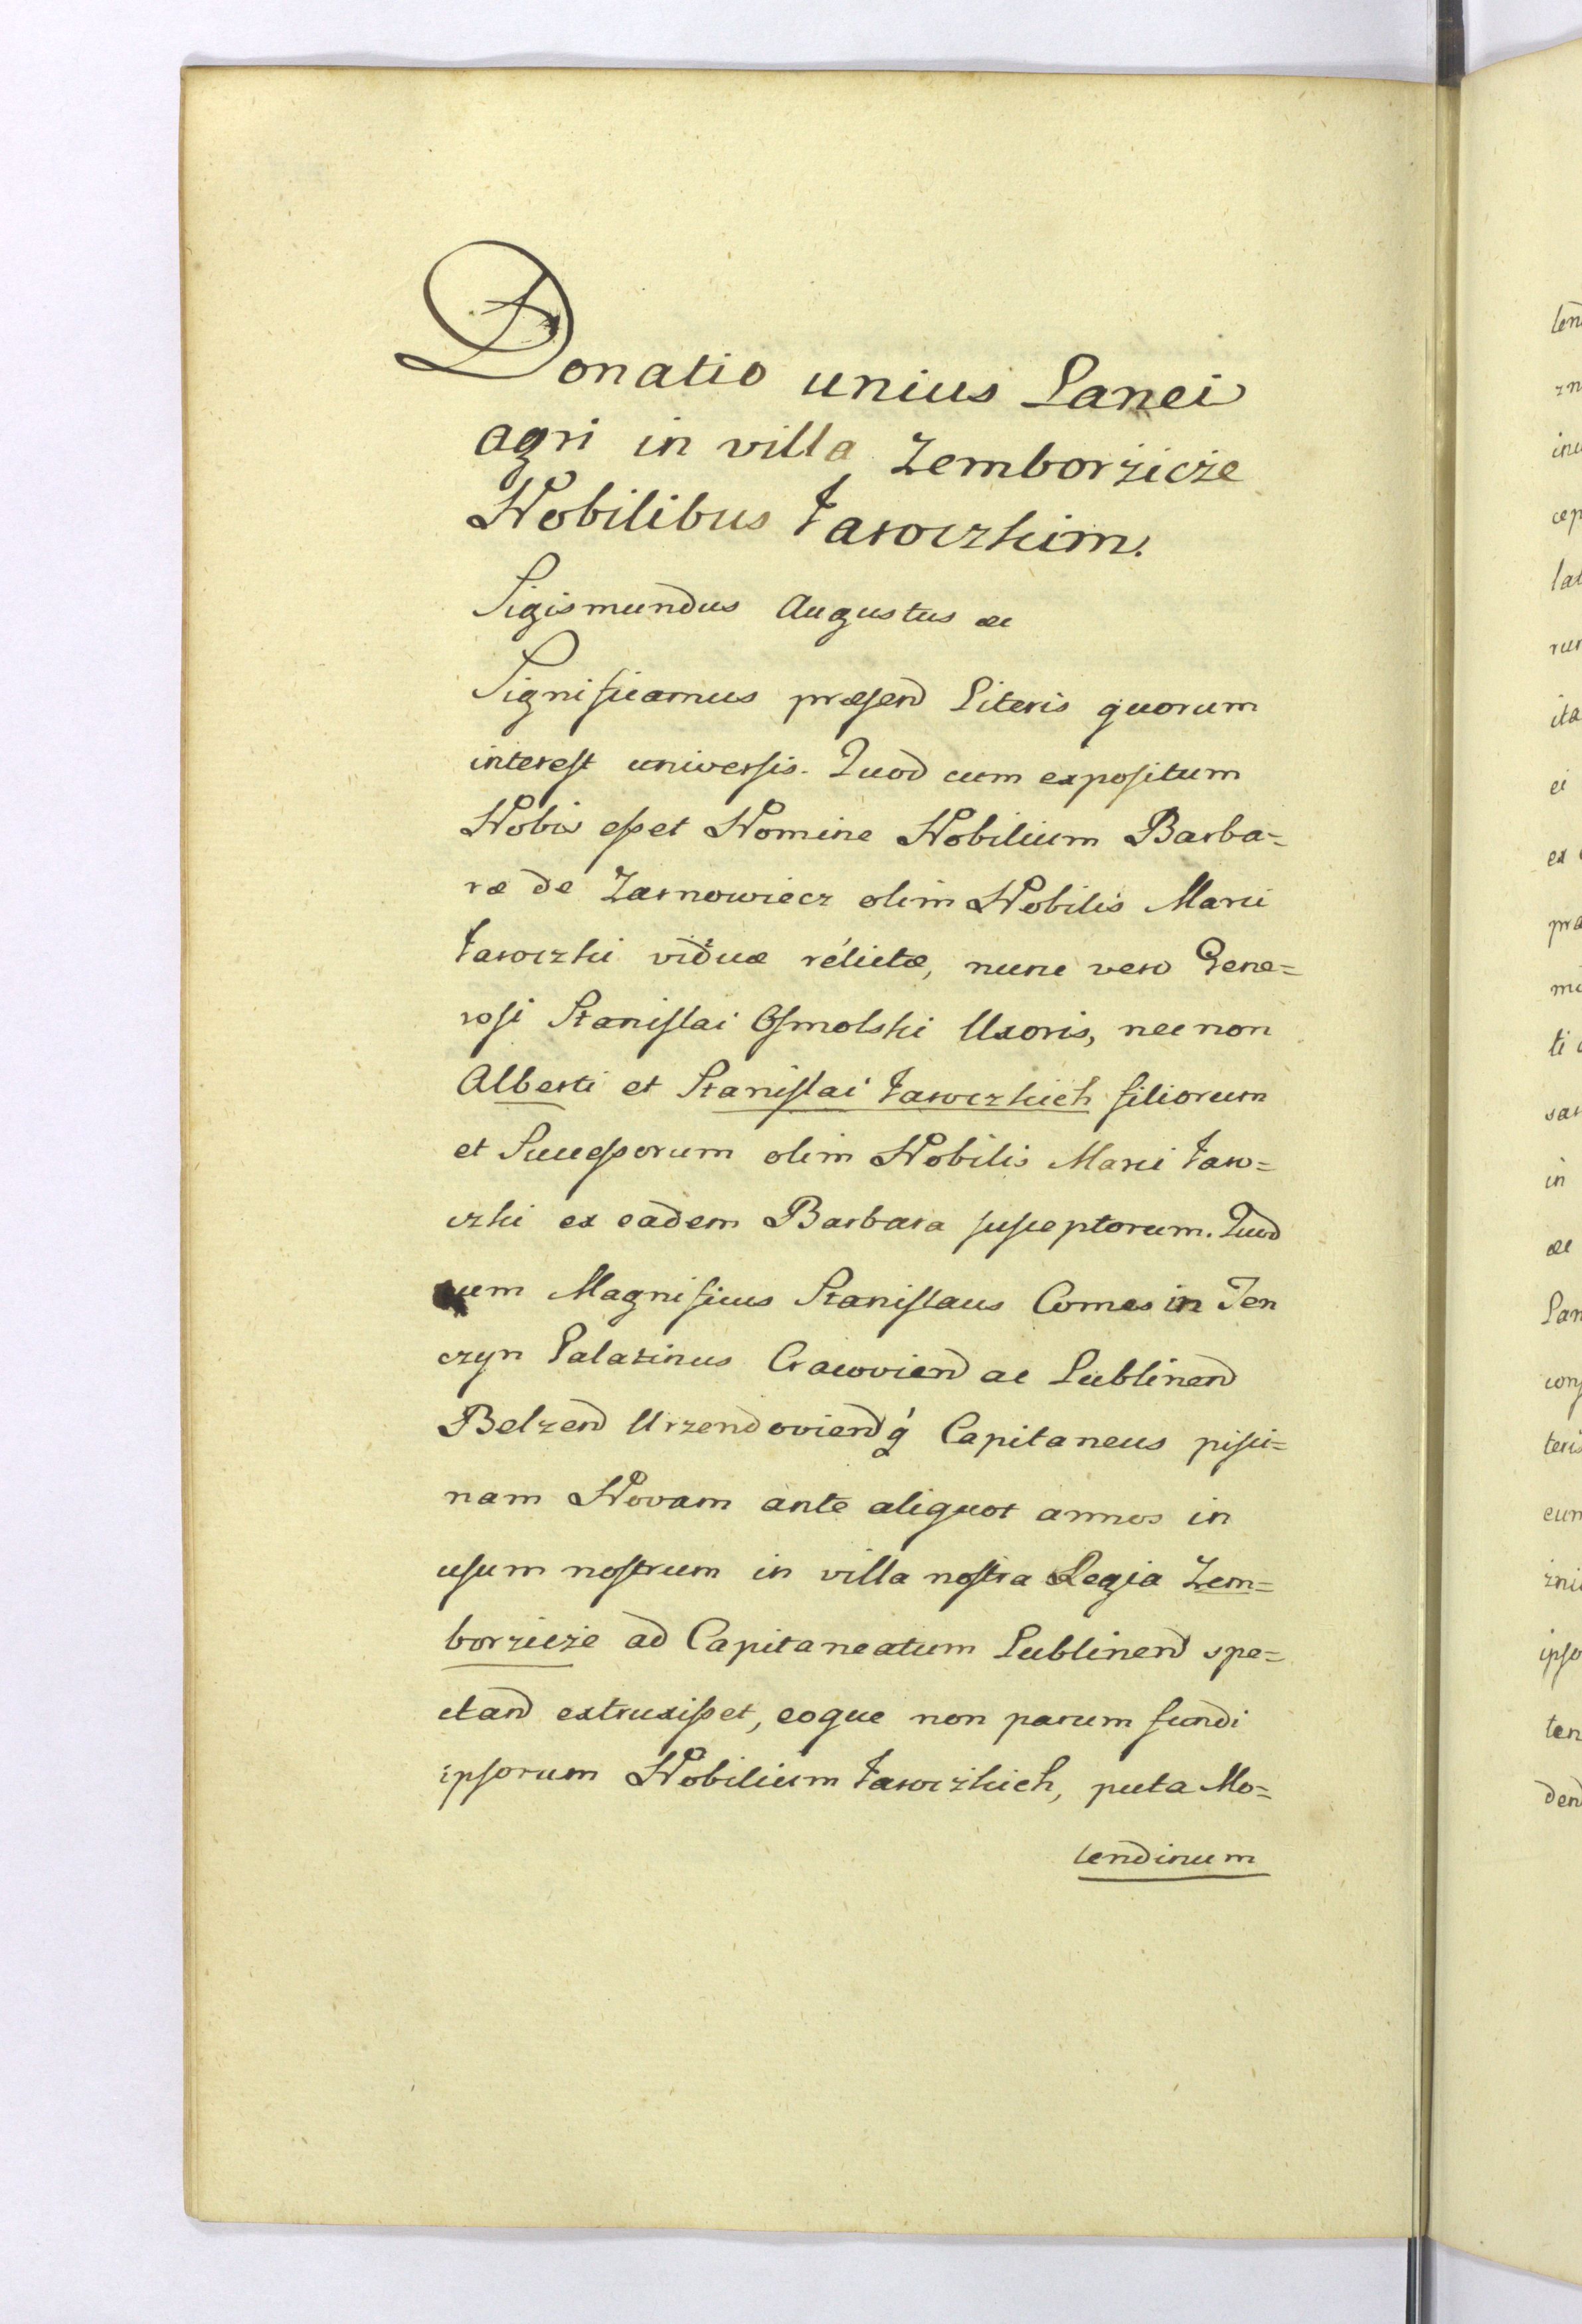 Donatio unius Lanei
agri in villa Zemborzicze
Nobilibus Jaroczkim.
Sigismundus Augustus &c
Significamus præsend Literis quorum
interest universis. Quod cum expositum
Nobis esset Nomine Nobilium Barba=
ræ de Zarnowiecz olim Nobilis Marci
Jaroczki viduæ relictæ, nunc vero Gene=
rosi Stanislai Osmolski Uxoris, nec non
Alberti et Stanislai Jaroczkich filiorum
et Successorum olim Nobilis Marci Jaro=
czki ex eadem Barbara susceptorum. Quod
cum Magnificus Stanislaus Comes in Ten
czyn Palatinus Cracoviend ac Lublinend
Belzend Urzendoviend q́ Capitaneus pisci=
nam Novam ante aliquot annos in
usum nostrum in villa nostra Regia Zem=
borzicze ad Capitaneatum Lublinend spe=
ctand extruxisset, eoque non parum fundi
ipsorum Nobilium Jaroczkich, puta Mo=
lendinum